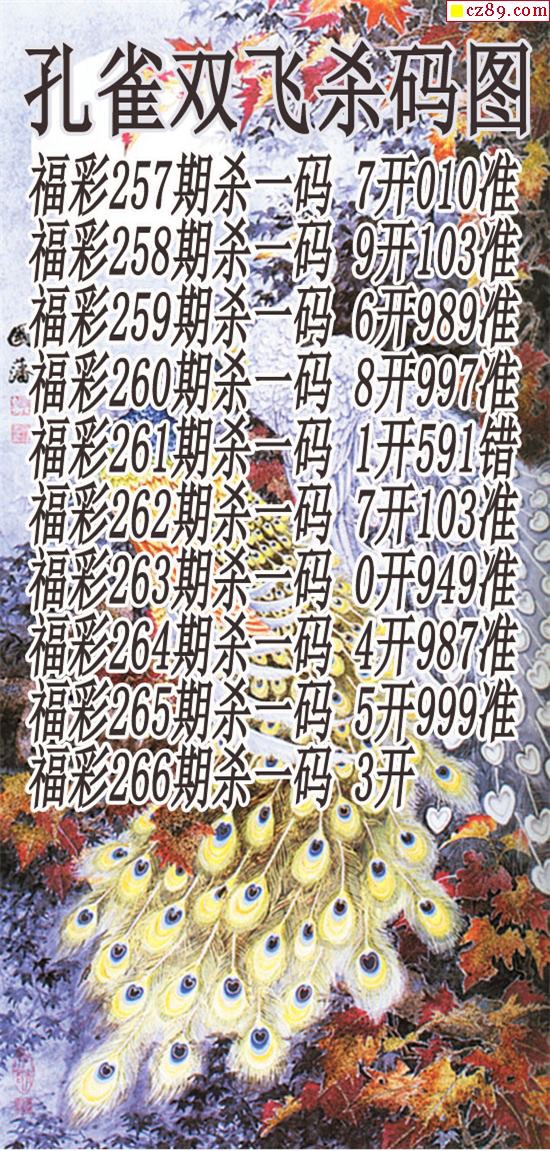 cz89.com
孔雀双飞杀码图
福彩257期杀一码 7开010准
福彩258期杀一码 9开103准
福彩259期杀一码 6开989准
福彩260期杀一码 8开997准
福彩261期杀一码 1开591错
福彩262期杀一码 7开103准
福彩263期杀一码 0开949准
福彩264期杀一码 4开987准
福彩265期杀一码 5开999准
福彩266期杀一码 3开